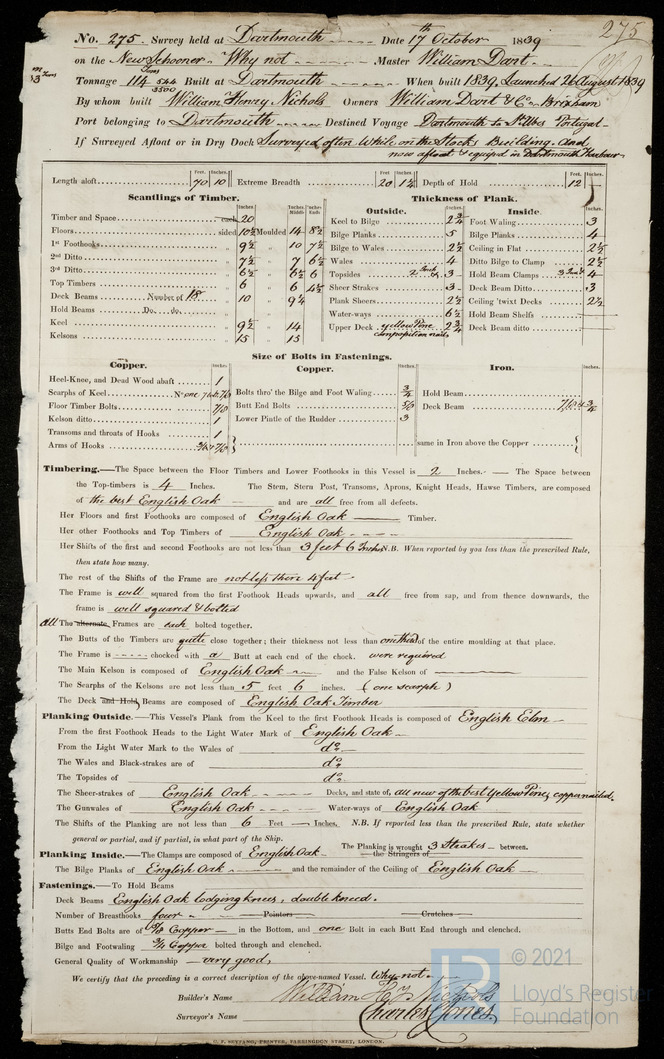 275
No. 275. Survey held at Dartmouth Date 17th October 1839
on the New Schooner Why not Master William Dart
Tonnage 114 Tons 564/3500 Built at Dartmouth When built 1839, Launched 26 August 1839
By whom built William Henry Nichols Owners William Dart & Co. Brixham
Port belonging to Dartmouth Destined Voyage Dartmouth to St Ubes Portugal
If Surveyed Afloat or in Dry Dock Surveyed often while on the Stocks Building, and
now afloat & equiped in Dartmouth Harbour
Feet. Inches. Feet. Inches. Feet. Inches.
Length aloft 70 10 Extreme Breadth 20 1½ Depth of Hold 12
Scantlings of Timber. Thickness of Plank.
Inches. Inches Middle Inches Ends Outside. Inches. Inside. Inches.
Timber and Space each 20 Keel to Bilge 2¾ Foot Waling 3
Floors sided 10½ Moulded 14 8½ Bilge Planks 5 Bilge Planks 4
1st Foothooks 9½ " 10 7½ Bilge to Wales 2½ Ceiling in Flat 2½
2nd Ditto 7½ " 7 6½ Wales 4 Ditto Bilge to Clamp 2½
3rd Ditto 6½ " 6½ 6 Topsides 3 Hold Beam Clamps 4
Top Timbers 6 " 6 4½ Sheer Strakes 3 Deck Beam Ditto 3
Deck Beams Number of 18 10 " 9¼ Plank Sheers 2½ Ceiling 'twixt Decks 2½
Hold Beams Do. do. Water-ways 6½ Hold Beam Shelfs
Keel 9½ " 14 Upper Deck yellow Pine 2¾ Deck Beam ditto
composition nails
Kelsons 15 " 15
Size of Bolts in Fastenings.
Copper. Inches. Copper. Inches. Iron. Inches.
Heel-Knee, and Dead Wood abaft 1
Scarphs of Keel 7/8 Bolts thro' the Bilge and Foot Waling ¾ Hold Beam
Floor Timber Bolts 7/8 Butt End Bolts 5/8 Deck Beam 7/8 & ¾
Kelson ditto 1 Lower Pintle of the Rudder 3
Transoms and throats of Hooks 1
Arms of Hooks ¾ & 7/8 same in Iron above the Copper
Timbering.—The Space between the Floor Timbers and Lower Foothooks in this Vessel is 2 Inches.— The Space between
the Top-timbers is 4 Inches. The Stem, Stern Post, Transoms, Aprons, Knight Heads, Hawse Timbers, are composed
of the best English Oak and are all free from all defects.
Her Floors and first Foothooks are composed of English Oak Timber.
Her other Foothooks and Top Timbers of English Oak
Her Shifts of the first and second Foothooks are not less than 3 feet 6 Inches N.B. When reported by you less than the prescribed Rule,
then state how many.
The rest of the Shifts of the Frame are not less than 4 feet
The Frame is well squared from the first Foothook Heads upwards, and all free from sap, and from thence downwards, the
frame is well squared & bolted
All The alternate Frames are each bolted together.
The Butts of the Timbers are quite close together; their thickness not less than one third of the entire moulding at that place.
The Frame is chocked with a Butt at each end of the chock. were required
The Main Kelson is composed of English Oak and the False Kelson of
The Scarphs of the Kelsons are not less than 5 feet 6 inches. (one scarph)
The Deck and Hold Beams are composed of English Oak Timber
Planking Outside.—This Vessel's Plank from the Keel to the first Foothook Heads is composed of English Elm
From the first Foothook Heads to the Light Water Mark of English Oak
From the Light Water Mark to the Wales of do.
The Wales and Black-strakes are of do.
The Topsides of do.
The Sheer-strakes of English Oak Decks, and state of, all new of the best Yellow Pine, copper nailed.
The Gunwales of English Oak Water-ways of English Oak
The Shifts of the Planking are not less than 6 Feet Inches. N.B. If reported less than the prescribed Rule, state whether
general or partial, and if partial, in what part of the Ship.
The Planking is wrought 3 Strakes between.
Planking Inside.—The Clamps are composed of English Oak the Stringers of
The Bilge Planks of English Oak and the remainder of the Ceiling of English Oak
Fastenings.—To Hold Beams
Deck Beams English Oak lodging knees, double kneed.
Number of Breasthooks four Pointers Crutches
Butts End Bolts are of 5/8 Copper in the Bottom, and one Bolt in each Butt End through and clenched.
Bilge and Footwaling ¾ Copper bolted through and clenched.
General Quality of Workmanship very good,
We certify that the preceding is a correct description of the above-named Vessel. Why not.
Builder's Name William Hy Nichols
Surveyor's Name Charles Jones
C. F. SEYFANG, PRINTER, FARRINGDON STREET, LONDON.
LR © 2021
Lloyd's Register
Foundation